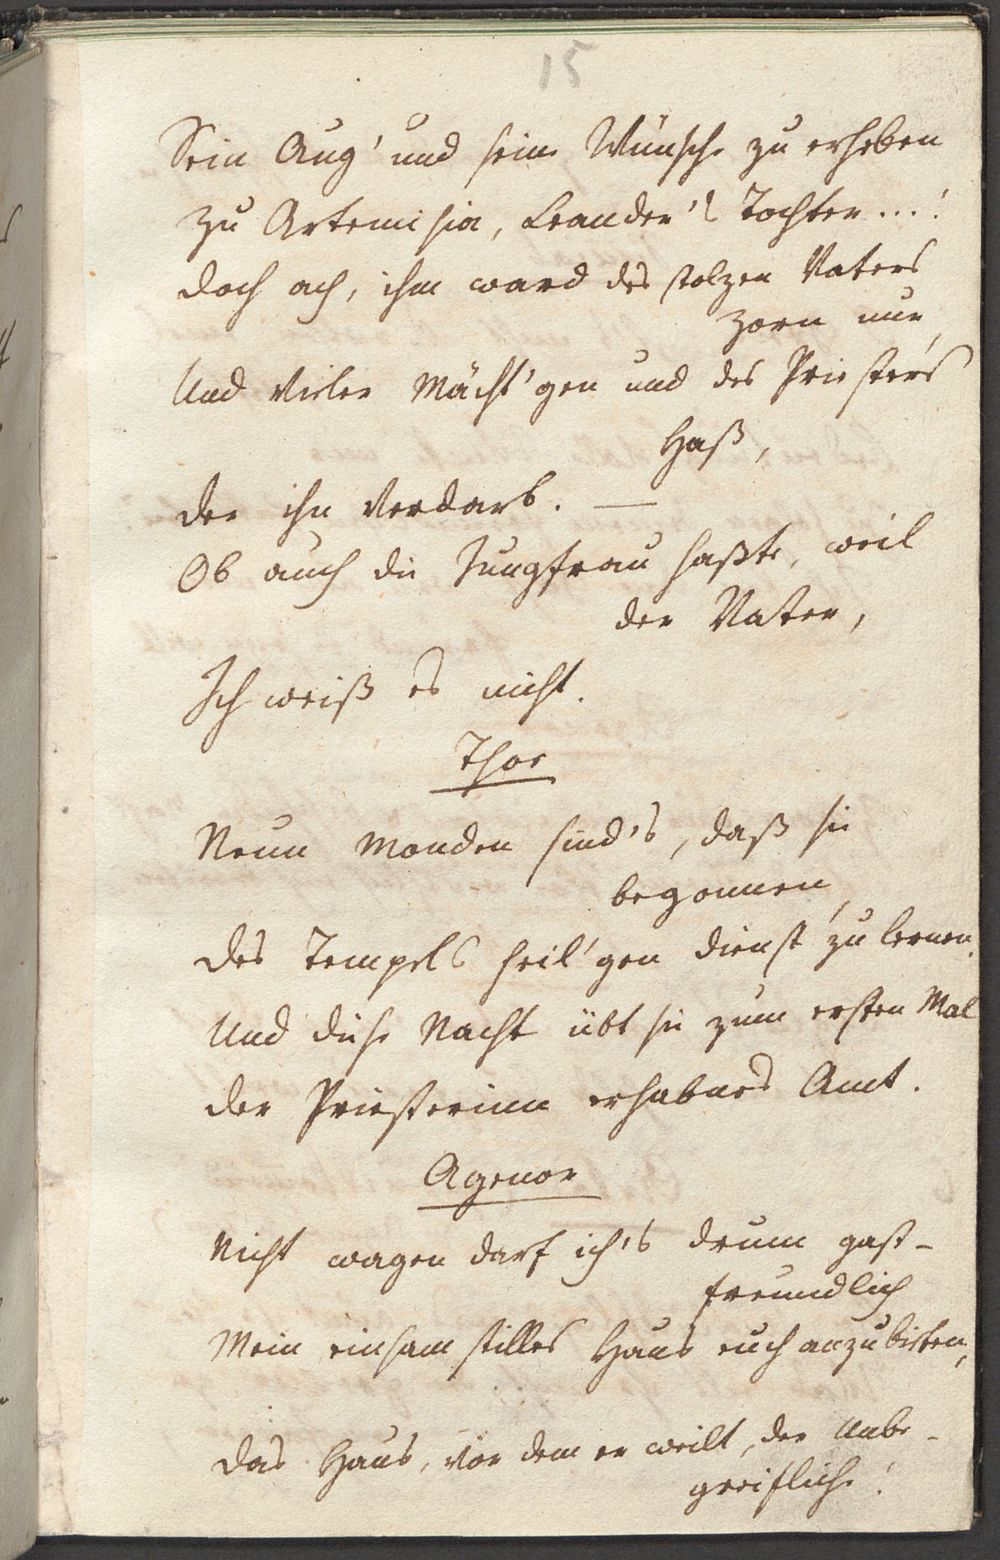 15
Sein Aug' und seine Wünsche zu erheben
Zu Artemisia, Leander's Tochter...!
Doch ach, ihm ward des stolzen Vaters
Zorn nur,
Und vieler Mächt'gen und des Priesters
Haß,
Der ihn verdarb. —
Ob auch die Jungfrau haßte, weil
der Vater,
Ich weiß es nicht.
Thor
Neun Monden sind's, daß sie
begonnen,
Des Tempels heil'gen Dienst zu lernen.
Und diese Nacht übt sie zum ersten Mal
Der Priesterinn erhabnes Amt.
Agenor
Nicht wagen darf ich's drum gast-
freundlich
Mein einsam stilles Haus euch anzubieten,
Das Haus, vor dem er weilt, der Unbe-
greifliche!